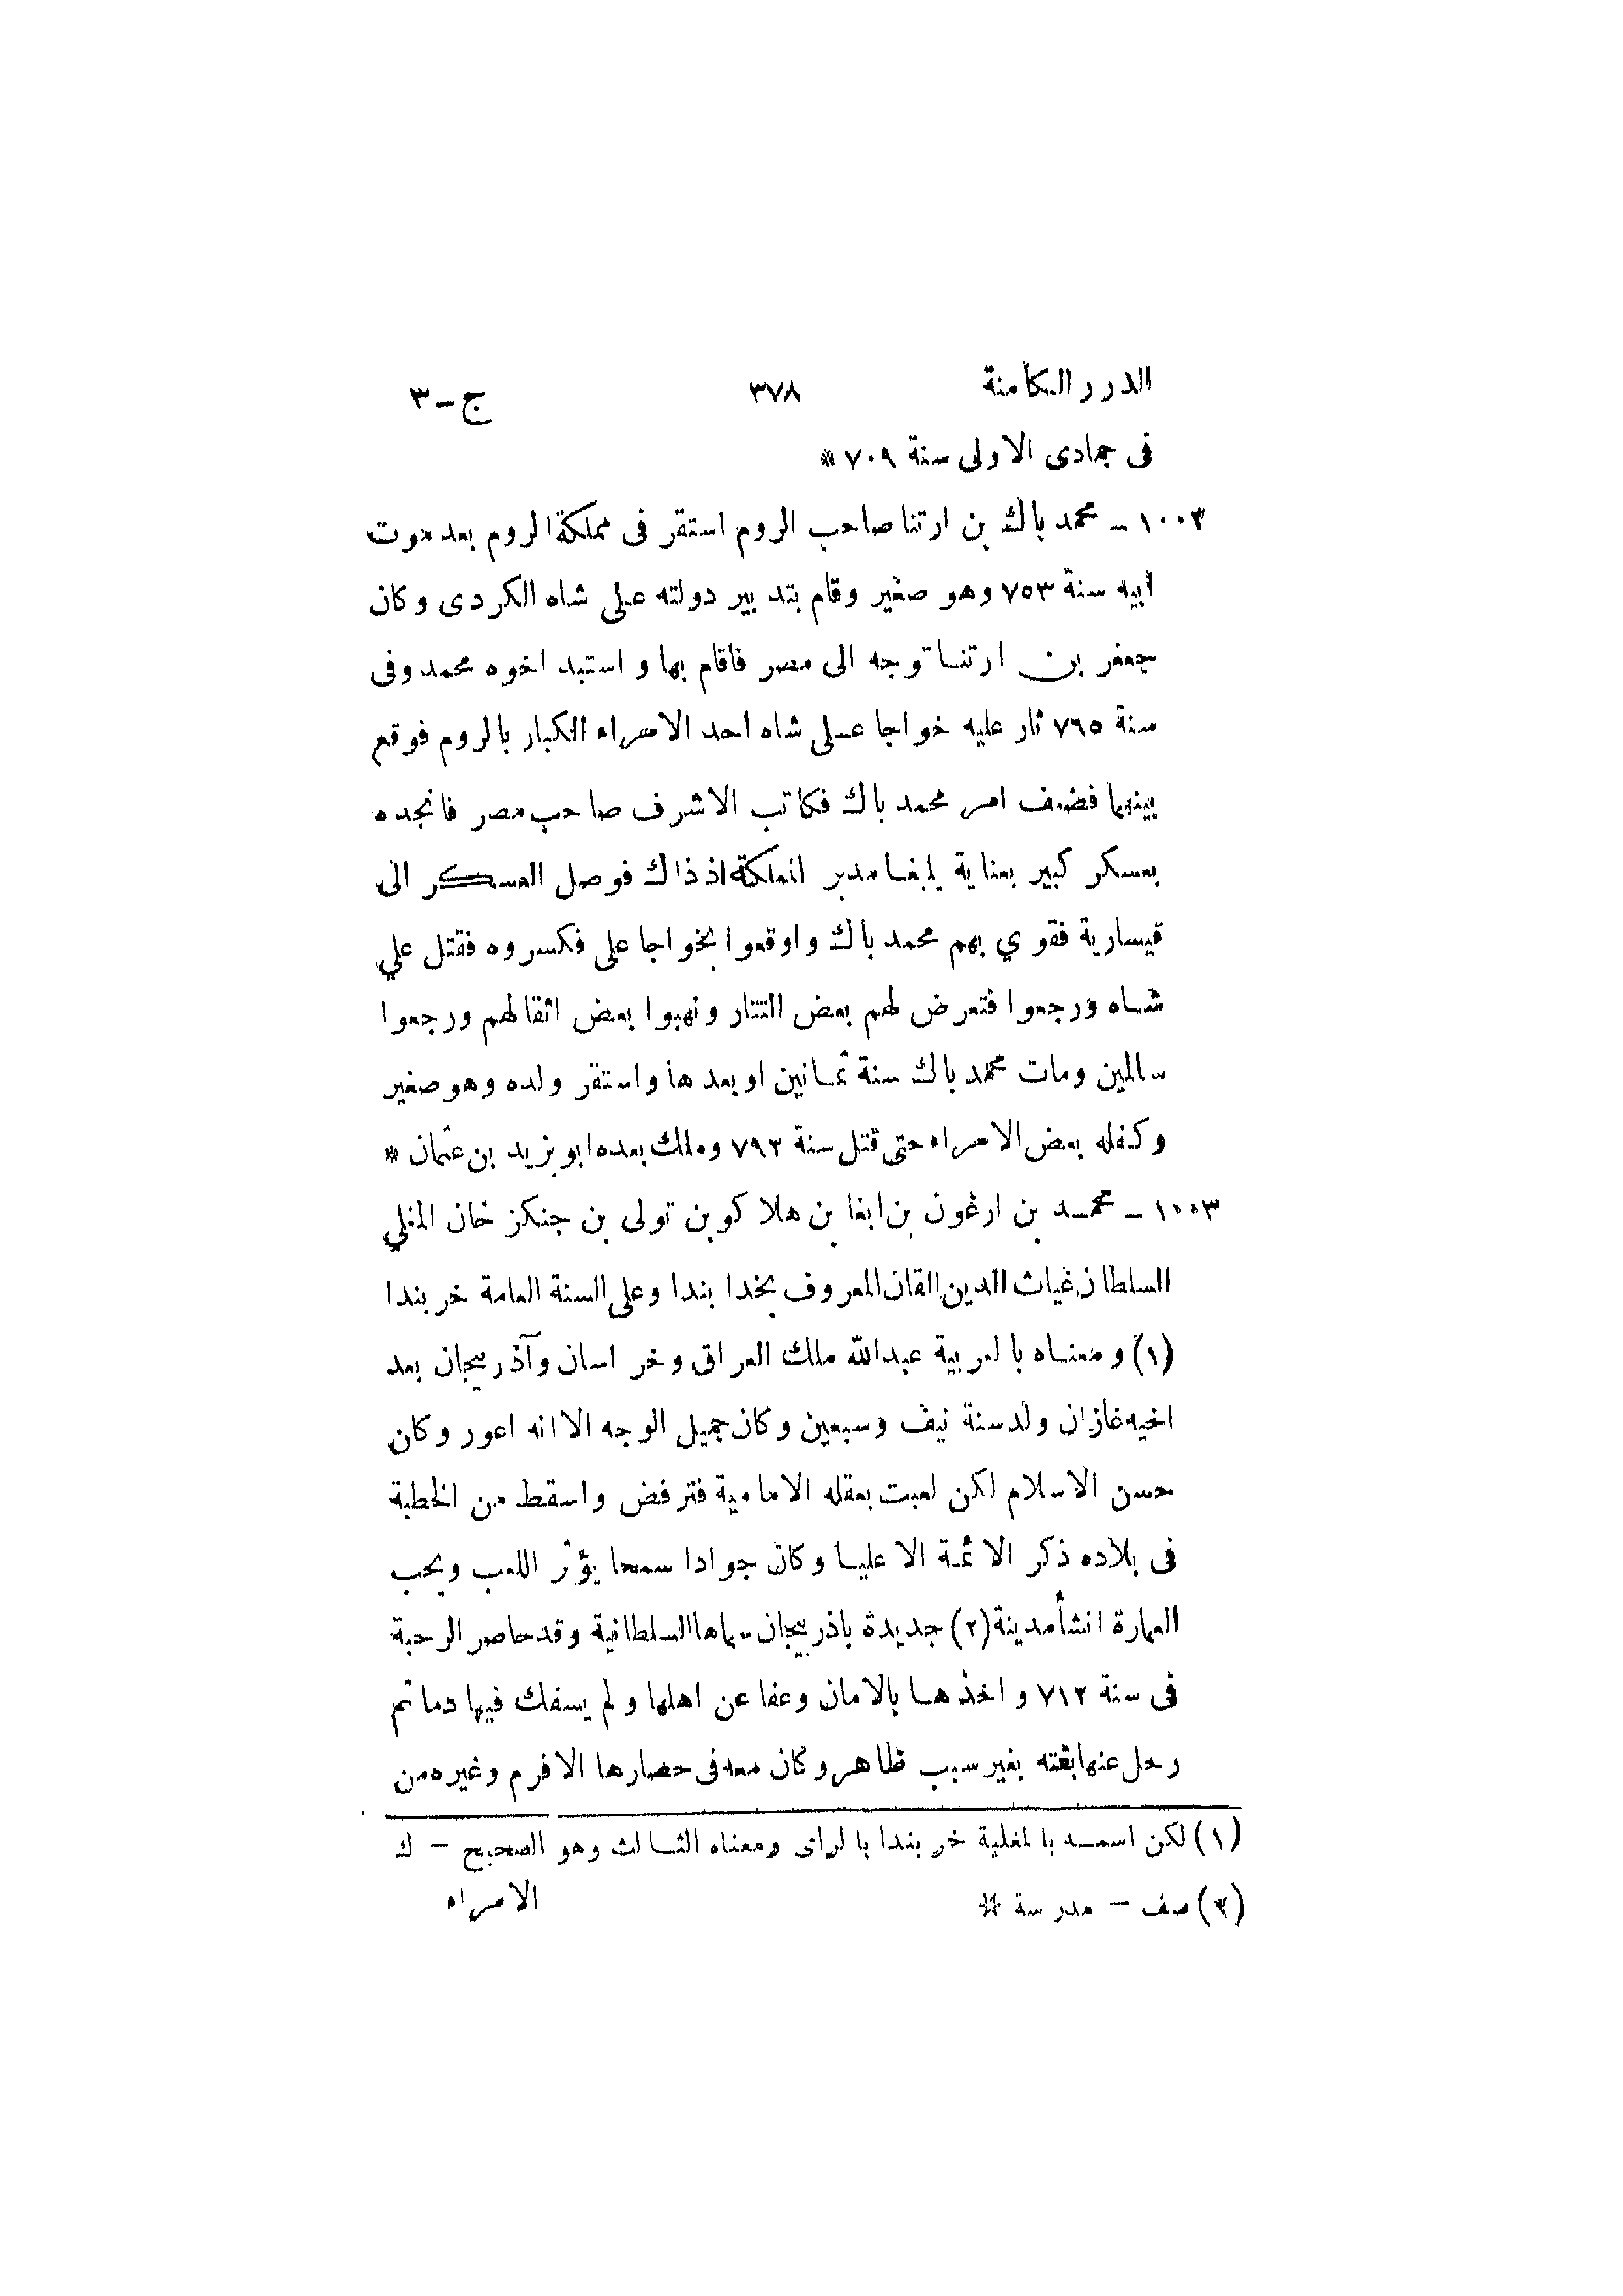 الدرر الكامنة ٣٧٨ ج - ٣
فى جمادى الاولى سنة ٧٠٩ *
١٠٠٢ - محمد باك بن ارتنا صاحب الروم استقر فى مملكة الروم بعد موت
ابيه سنة ٧٥٣ وهو صغير وقام بتدبير دولته على شاه الكردى وكان
جعفر بن ارتنا توجه الى مصر فاقام بها و استبد اخوه محمد وفى
سنة ٧٦٥ ثار عليه خواجا على شاه احد الامراء الكبار بالروم فوقع
بينهما فضعف امر محمد باك فكاتب الاشرف صاحب مصر فانجده
بعسكر كبير بعناية يلبغا مدبر المملكة اذ ذاك فوصل العسكر الى
قيسارية فقوي بهم محمد باك و اوقعوا بخواجا على فكسروه فقتل علي
شاه ورجعوا فتعرض لهم بعض التتار ونهبوا بعض اثقالهم ورجعوا
سالمين ومات محمد باك سنة ثمانين او بعدها واستقر ولده وهو صغير
وكفله بعض الامراء حتى قتل سنة ٧٩٢ وملك بعده ابو يزيد بن عثمان *
١٠٠٣ - محمد بن ارغون بن ابغا بن هلاكو بن تولى بن جنكز خان المغلي
السلطان غياث الدين القان المعروف بخدا بندا وعلى السنة العامة خر بندا
(١) و معناه بالعربية عبدالله ملك العراق وخراسان وآذربيجان بعد
اخيه غازان ولد سنة نيف وسبعين وكان جميل الوجه الا انه اعور وكان
حسن الاسلام لكن لعبت بعقله الامامية فترفض واسقط من الخطبة
فى بلاده ذكر الائمة الا عليا وكان جوادا سمحا يؤثر اللعب ويحب
العمارة انشأ مدينة (٢) جديدة باذربيجان سماها السلطانية وقد حاصر الرحبة
فى سنة ٧١٢ و اخذها بالامان وعفا عن اهلها ولم يسفك فيها دما ثم
رحل عنها بغتة بغير سبب ظاهر وكان معه فى حصارها الافرم وغيره من
(١) لكن اسمه بالمغلية خر بندا بالراى ومعناه الثالث وهو الصحيح - ك
(٢) صف - مدرسة * الامراء